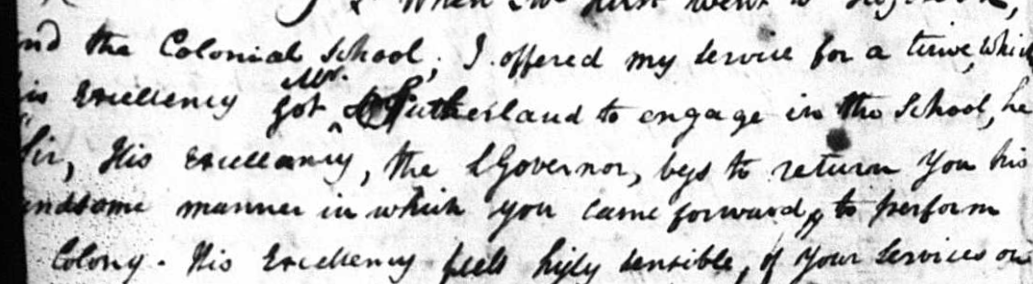 When I first went to
nd the Colonial School, I offered my service for a time, whi
is Excellency got Mr. Sutherland to engage in the School, he
Sir, His Excellancy, the LGovernor, begs to return you his
andsome manner in which you came forward, to perform
Colony. His Excellency feels higly sensible, of your services on